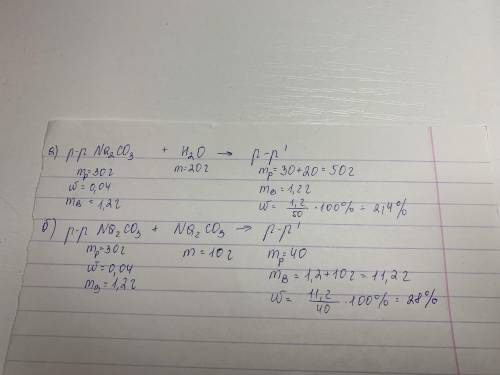 а) р-р Na₂CO₃ + H₂O → р-р'
mр=30г m=20г mр=30+20=50г
ω=0,04 mв=1,2г
mв=1,2г ω= 1,2/50 ·100% = 2,4%
б) р-р Na₂CO₃ + Na₂CO₃ → р-р'
mр=30г m=10г mр=40
ω=0,04 mв=1,2+10г=11,2г
mв=1,2г ω= 11,2/40 ·100% = 28%